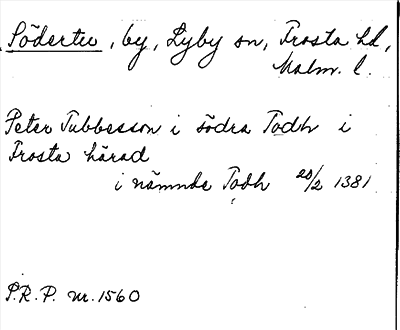 Södertu, by, Lyby sn, Frosta hd,
Malm. l.
Peter Tubbesson i södra Todh i
Frosta härad
i nämnde Todh 20/2 1381
P.R.P. nr. 1560